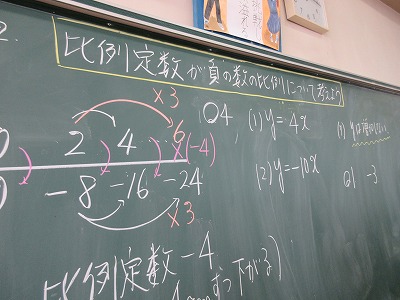 比例定数が負の数の比例について考えよう
×3
2 4 6
×(-4)
-8 -16 -24
×3
○4
(1) y=4x
(2) y=-10x
-3
比例定数 -4
ずつ下がる)